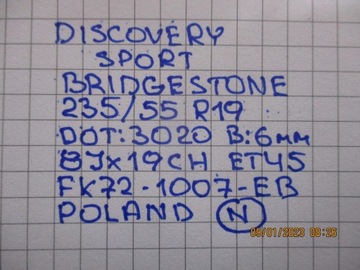 DISCOVERY
SPORT
BRIDGESTONE
235/55 R19
DOT:3020 B:6mm
8Jx19CH ET45
FK72-1007-EB
POLAND N
09/01/2023 09:26